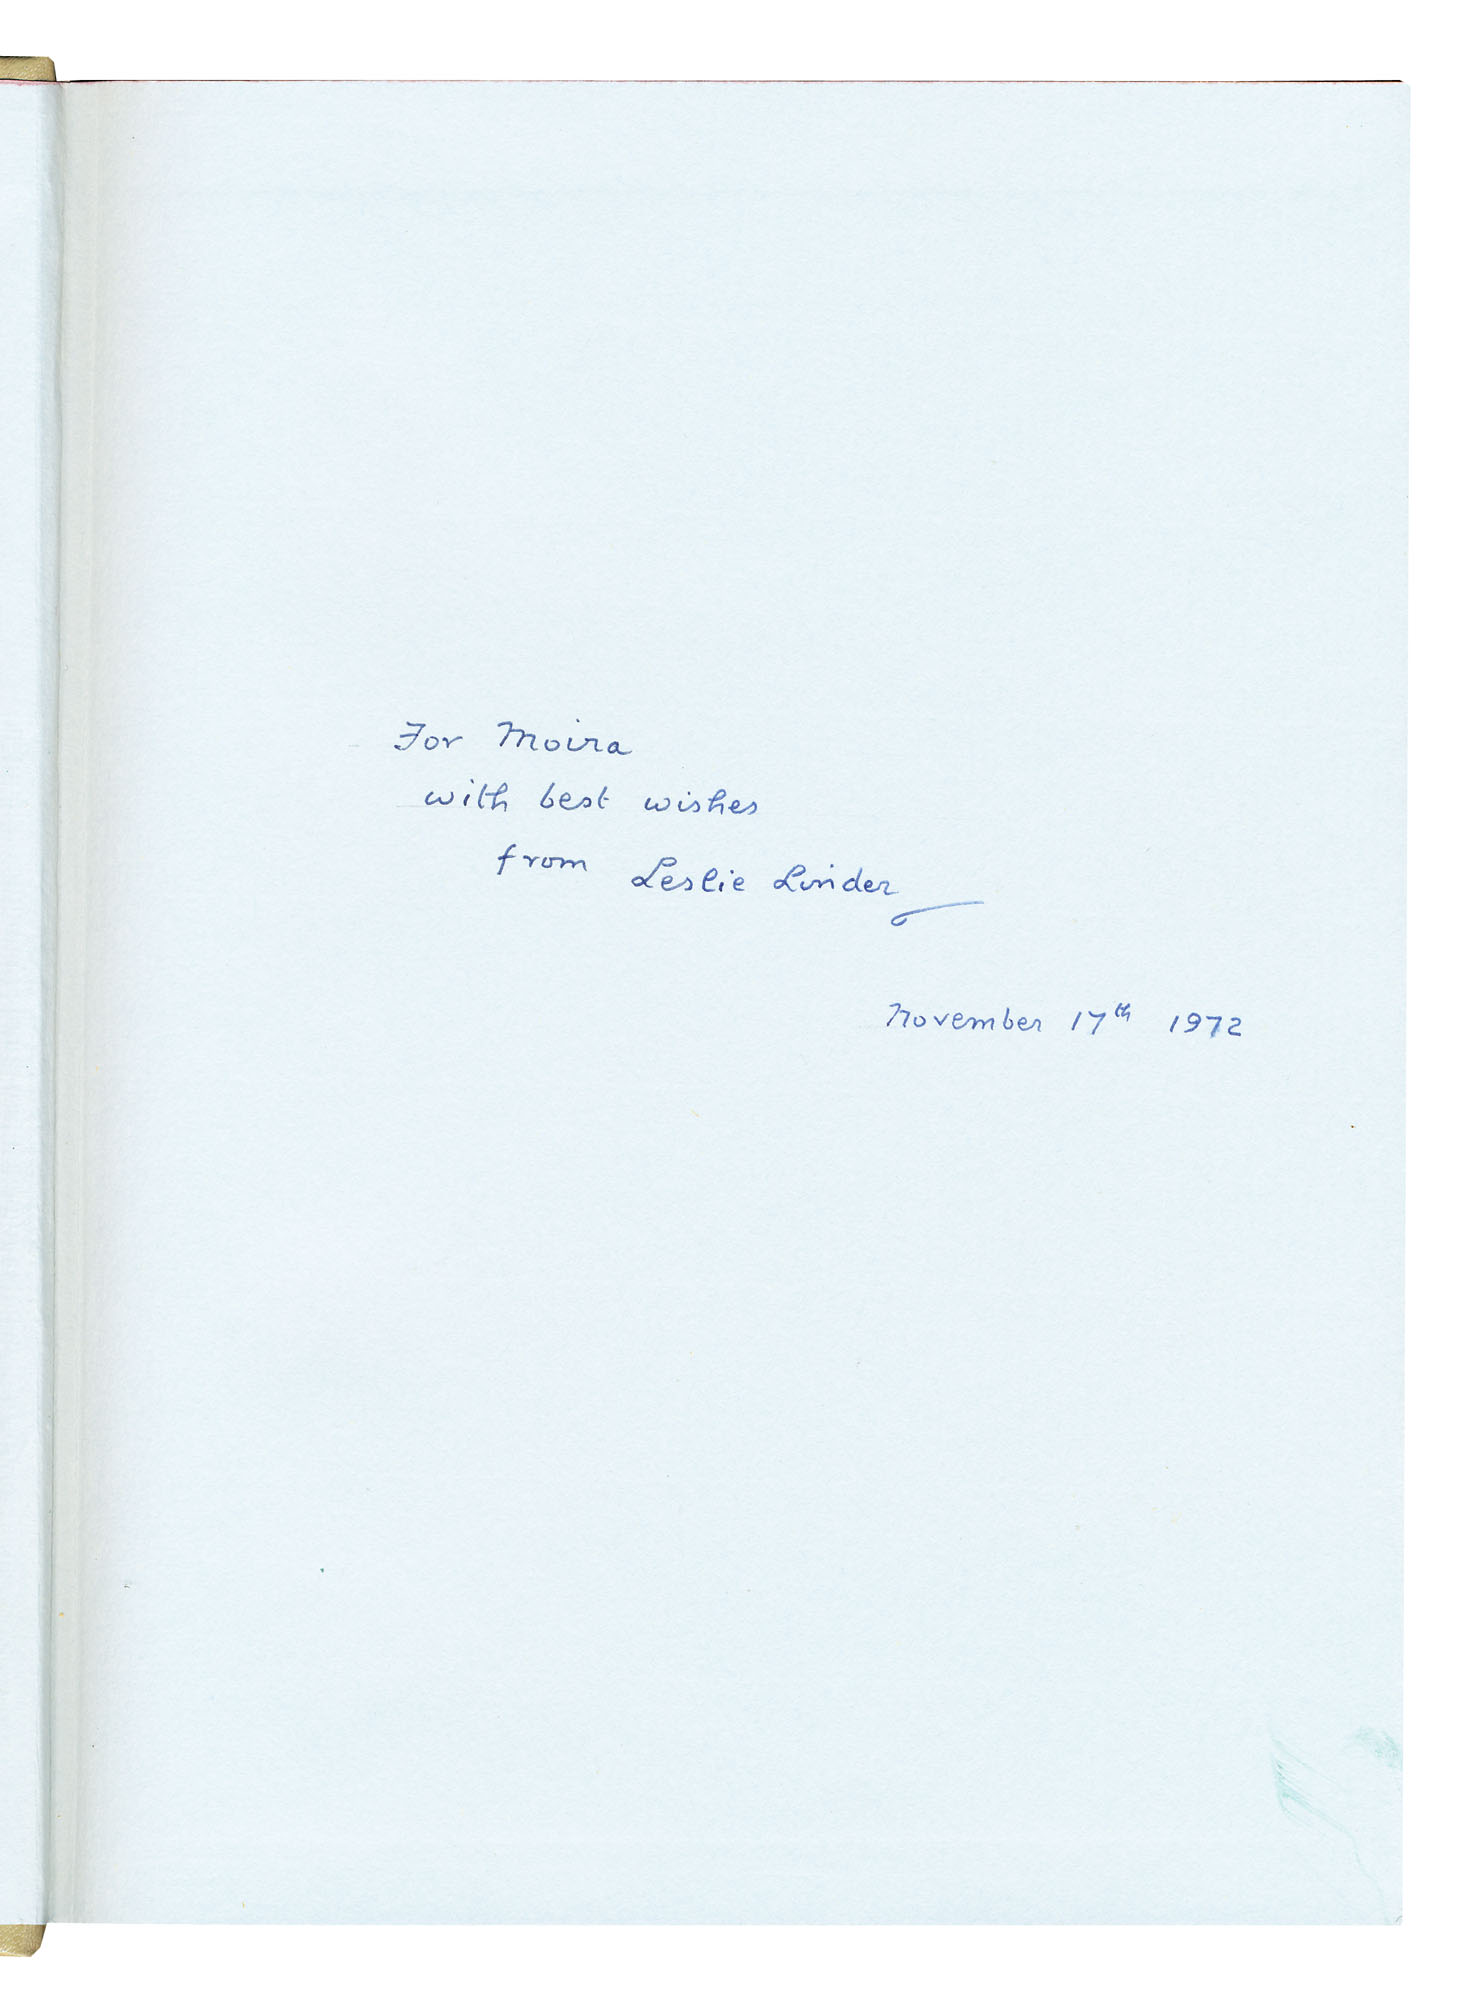 For Moira
with best wishes
from Leslie Linder
November 17th 1972